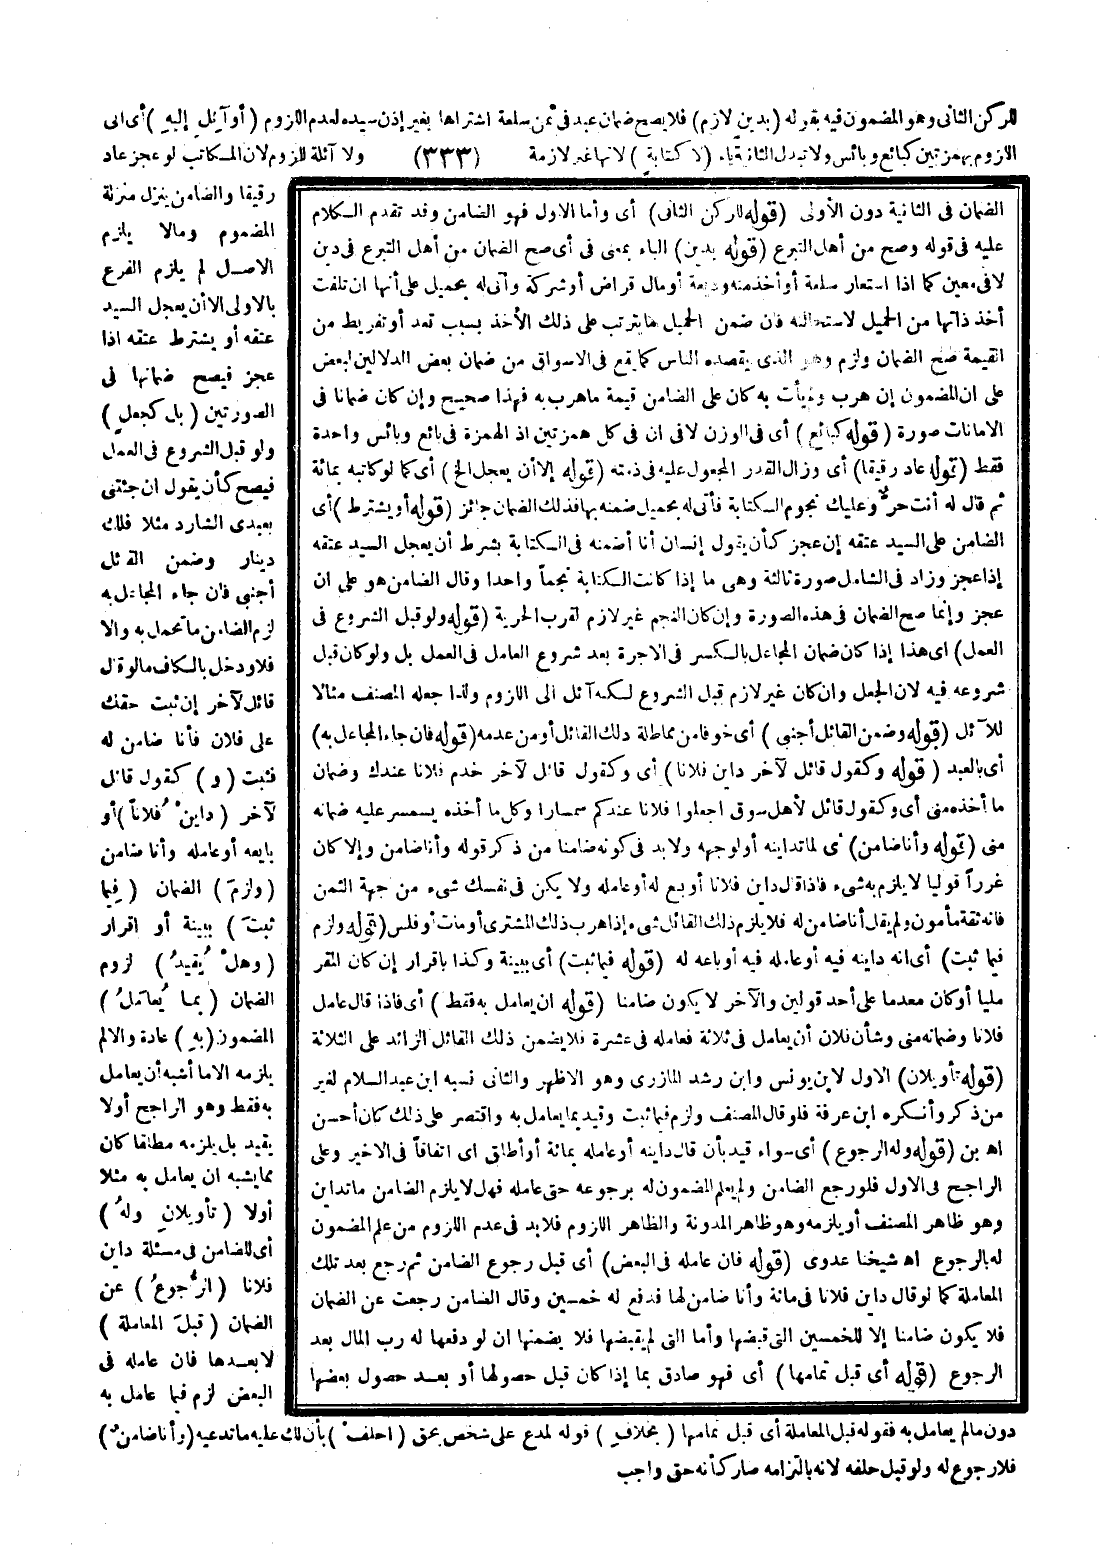 للركن الثانى وهو المضمون فيه بقوله (بدين لازم) فلا يصح ضمان عبد فى ثمن سلعة اشتراها بغير إذن سيده لعدم اللزوم (أو آيْلٍ إليهِ) أى الى
اللزوم بهمزتين كبائع وبائس ولا تبدل الثانية ياء (لا كتابةٍ) لانها غير لازمة (٣٣٣) ولا آئلة للزوم لان المكاتب لو عجز عاد
رقيقا والضامن ينزل منزلة
المضموم ومالا يلزم
الاصل لم يلزم الفرع
بالاولى الا أن يعجل السيد
عتقه أو يشترط عتقه اذا
عجز فيصح ضمانها فى
الصورتين (بل كجعلٍ)
ولو قبل الشروع فى العمل
فيصح كأن يقول ان جئتنى
بعبدى الشارد مثلا فلك
دينار وضمن القائل
أجنبى فان جاء المجاعل به
لزم الضامن ما تحمل به والا
فلا ودخل بالكاف ما لو قال
قائل لآخر إن ثبت حقك
على فلان فأنا ضامن له
فثبت (و) كقول قائل
لآخر (داينْ فُلاناً) أو
بايعه أو عامله وأنا ضامن
(ولزمَ) الضمان (فيما
ثبتَ) ببينة أو اقرار
(وهلْ يُقيدُ) لزوم
الضمان (بما يُعاملُ)
المضمون (بهِ) عادة والا لم
يلزمه الا ما أشبه أن يعامل
به فقط وهو الراجح أولا
يقيد بل يلزمه مطلقا كان
مما يشبه ان يعامل به مثلا
أولا (تأويلانِ ولهُ)
أى للضامن فى مسئلة داين
فلانا (الرُّجوعُ) عن
الضمان (قبلَ المعاملة)
لا بعدها فان عامله فى
البعض لزم فيما عامل به
الضمان فى الثانية دون الأولى (قوله للركن الثانى) أى وأما الاول فهو الضامن وقد تقدم الكلام
عليه فى قوله وصح من أهل التبرع (قوله بدين) الباء بمعنى فى أى صح الضمان من أهل التبرع فى دين
لا فى معين كما اذا استعار سلعة أو أخذ منه وديعة أو مال قراض أو شركة وأتى له بحميل على أنها ان تلفت
أخذ ذاتها من الحميل لاستحالته فان ضمن الحميل ما يترتب على ذلك الأخذ بسبب تعد أو تفريط من
القيمة صح الضمان ولزم وهو الذى يقصده الناس كما يقع فى الاسواق من ضمان بعض الدلالين لبعض
على ان المضمون إن هرب ولم يأت به كان على الضامن قيمة ما هرب به فهذا صحيح وإن كان ضمانا فى
الامانات صورة (قوله كبائع) أى فى الوزن لا فى ان فى كل همزتين اذ الهمزة فى بائع وبائس واحدة
فقط (قوله عاد رقيقا) أى وزال القدر المجعول عليه فى ذمته (قوله إلا أن يعجل الخ) أى كما لو كاتبه بمائة
ثم قال له أنت حر وعليك نجوم الكتابة فأتى له بحميل ضمنه بها فذلك الضمان جائز (قوله أو يشترط) أى
الضامن على السيد عتقه إن عجز كأن يقول إنسان أنا أضمنه فى الكتابة بشرط أن يعجل السيد عتقه
إذا عجز وزاد فى الشامل صورة ثالثة وهى ما إذا كانت الكتابة نجماً واحدا وقال الضامن هو على ان
عجز وإنما صح الضمان فى هذه الصورة وإن كان النجم غير لازم لقرب الحرية (قوله ولو قبل الشروع فى
العمل) اى هذا إذا كان ضمان المجاعل بالكسر فى الاجرة بعد شروع العامل فى العمل بل ولو كان قبل
شروعه فيه لان الجعل وان كان غير لازم قبل الشروع لكنه آئل الى اللزوم ولذا جعله المصنف مثالا
للآئل (قوله وضمن القائل أجنبى) أى خوفا من مماطلة ذلك القائل أو من عدمه (قوله فان جاء المجاعل به)
أى بالعبد (قوله وكقول قائل لآخر داين فلانا) أى وكقول قائل لآخر خدم فلانا عندك وضمان
ما أخذه منى أى وكقول قائل لأهل سوق اجعلوا فلانا عندكم سمسارا وكل ما أخذه يسمسر عليه ضمانه
منى (قوله وأنا ضامن) أى لما تداينه أو لوجهه ولا بد فى كونه ضامنا من ذكر قوله وأنا ضامن وإلا كان
غرراً قوليا لا يلزم به شىء فاذا قال داين فلانا أو بع له أو عامله ولا يكن فى نفسك شىء من جهة الثمن
فانه ثقة مأمون ولم يقل أنا ضامن له فلا يلزم ذلك القائل شىء إذا هرب ذلك المشترى أو مات أو فلس (قوله ولزم
فيما ثبت) أى انه داينه فيه أو عامله فيه أو باعه له (قوله فيما ثبت) أى ببينة وكذا باقرار إن كان المقر
مليا أو كان معدما على أحد قولين والآخر لا يكون ضامنا (قوله ان يعامل به فقط) أى فاذا قال عامل
فلانا وضمانه منى وشأن فلان أن يعامل فى ثلاثة فعامله فى عشرة فلا يضمن ذلك القائل الزائد على الثلاثة
(قوله تأويلان) الاول لابن يونس وابن رشد المازرى وهو الاظهر والثانى نسبه ابن عبد السلام لغير
من ذكر وأنكره ابن عرفة فلو قال المصنف ولزم فيما ثبت وقيد بما يعامل به واقتصر على ذلك كان أحسن
اه بن (قوله وله الرجوع) أى سواء قيد بأن قال داينه أو عامله بمائة أو أطلق اى اتفاقاً فى الاخير وعلى
الراجح فى الاول فلو رجع الضامن ولم يعلم المضمون له برجوعه حتى عامله فهل لا يلزم الضامن ما تداين
وهو ظاهر المصنف أو يلزمه وهو ظاهر المدونة والظاهر اللزوم فلا بد فى عدم اللزوم من علم المضمون
له بالرجوع اه شيخنا عدوى (قوله فان عامله فى البعض) أى قبل رجوع الضامن ثم رجع بعد تلك
المعاملة كما لو قال داين فلانا فى مائة وأنا ضامن لها فدفع له خمسين وقال الضامن رجعت عن الضمان
فلا يكون ضامنا إلا للخمسين التى قبضها وأما التى لم يقبضها فلا يضمنها ان لو دفعها له رب المال بعد
الرجوع (قوله أى قبل تمامها) أى فهو صادق بما إذا كان قبل حصولها أو بعد حصول بعضها
دون مالم يعامل به فقوله قبل المعاملة أى قبل تمامها (بخلافِ) قوله لمدع على شخص بحق (احلفْ) بأن لك عليه ما تدعيه (وأنا ضامنٌ)
فلا رجوع له ولو قبل حلفه لانه بالتزامه صار كأنه حق واجب